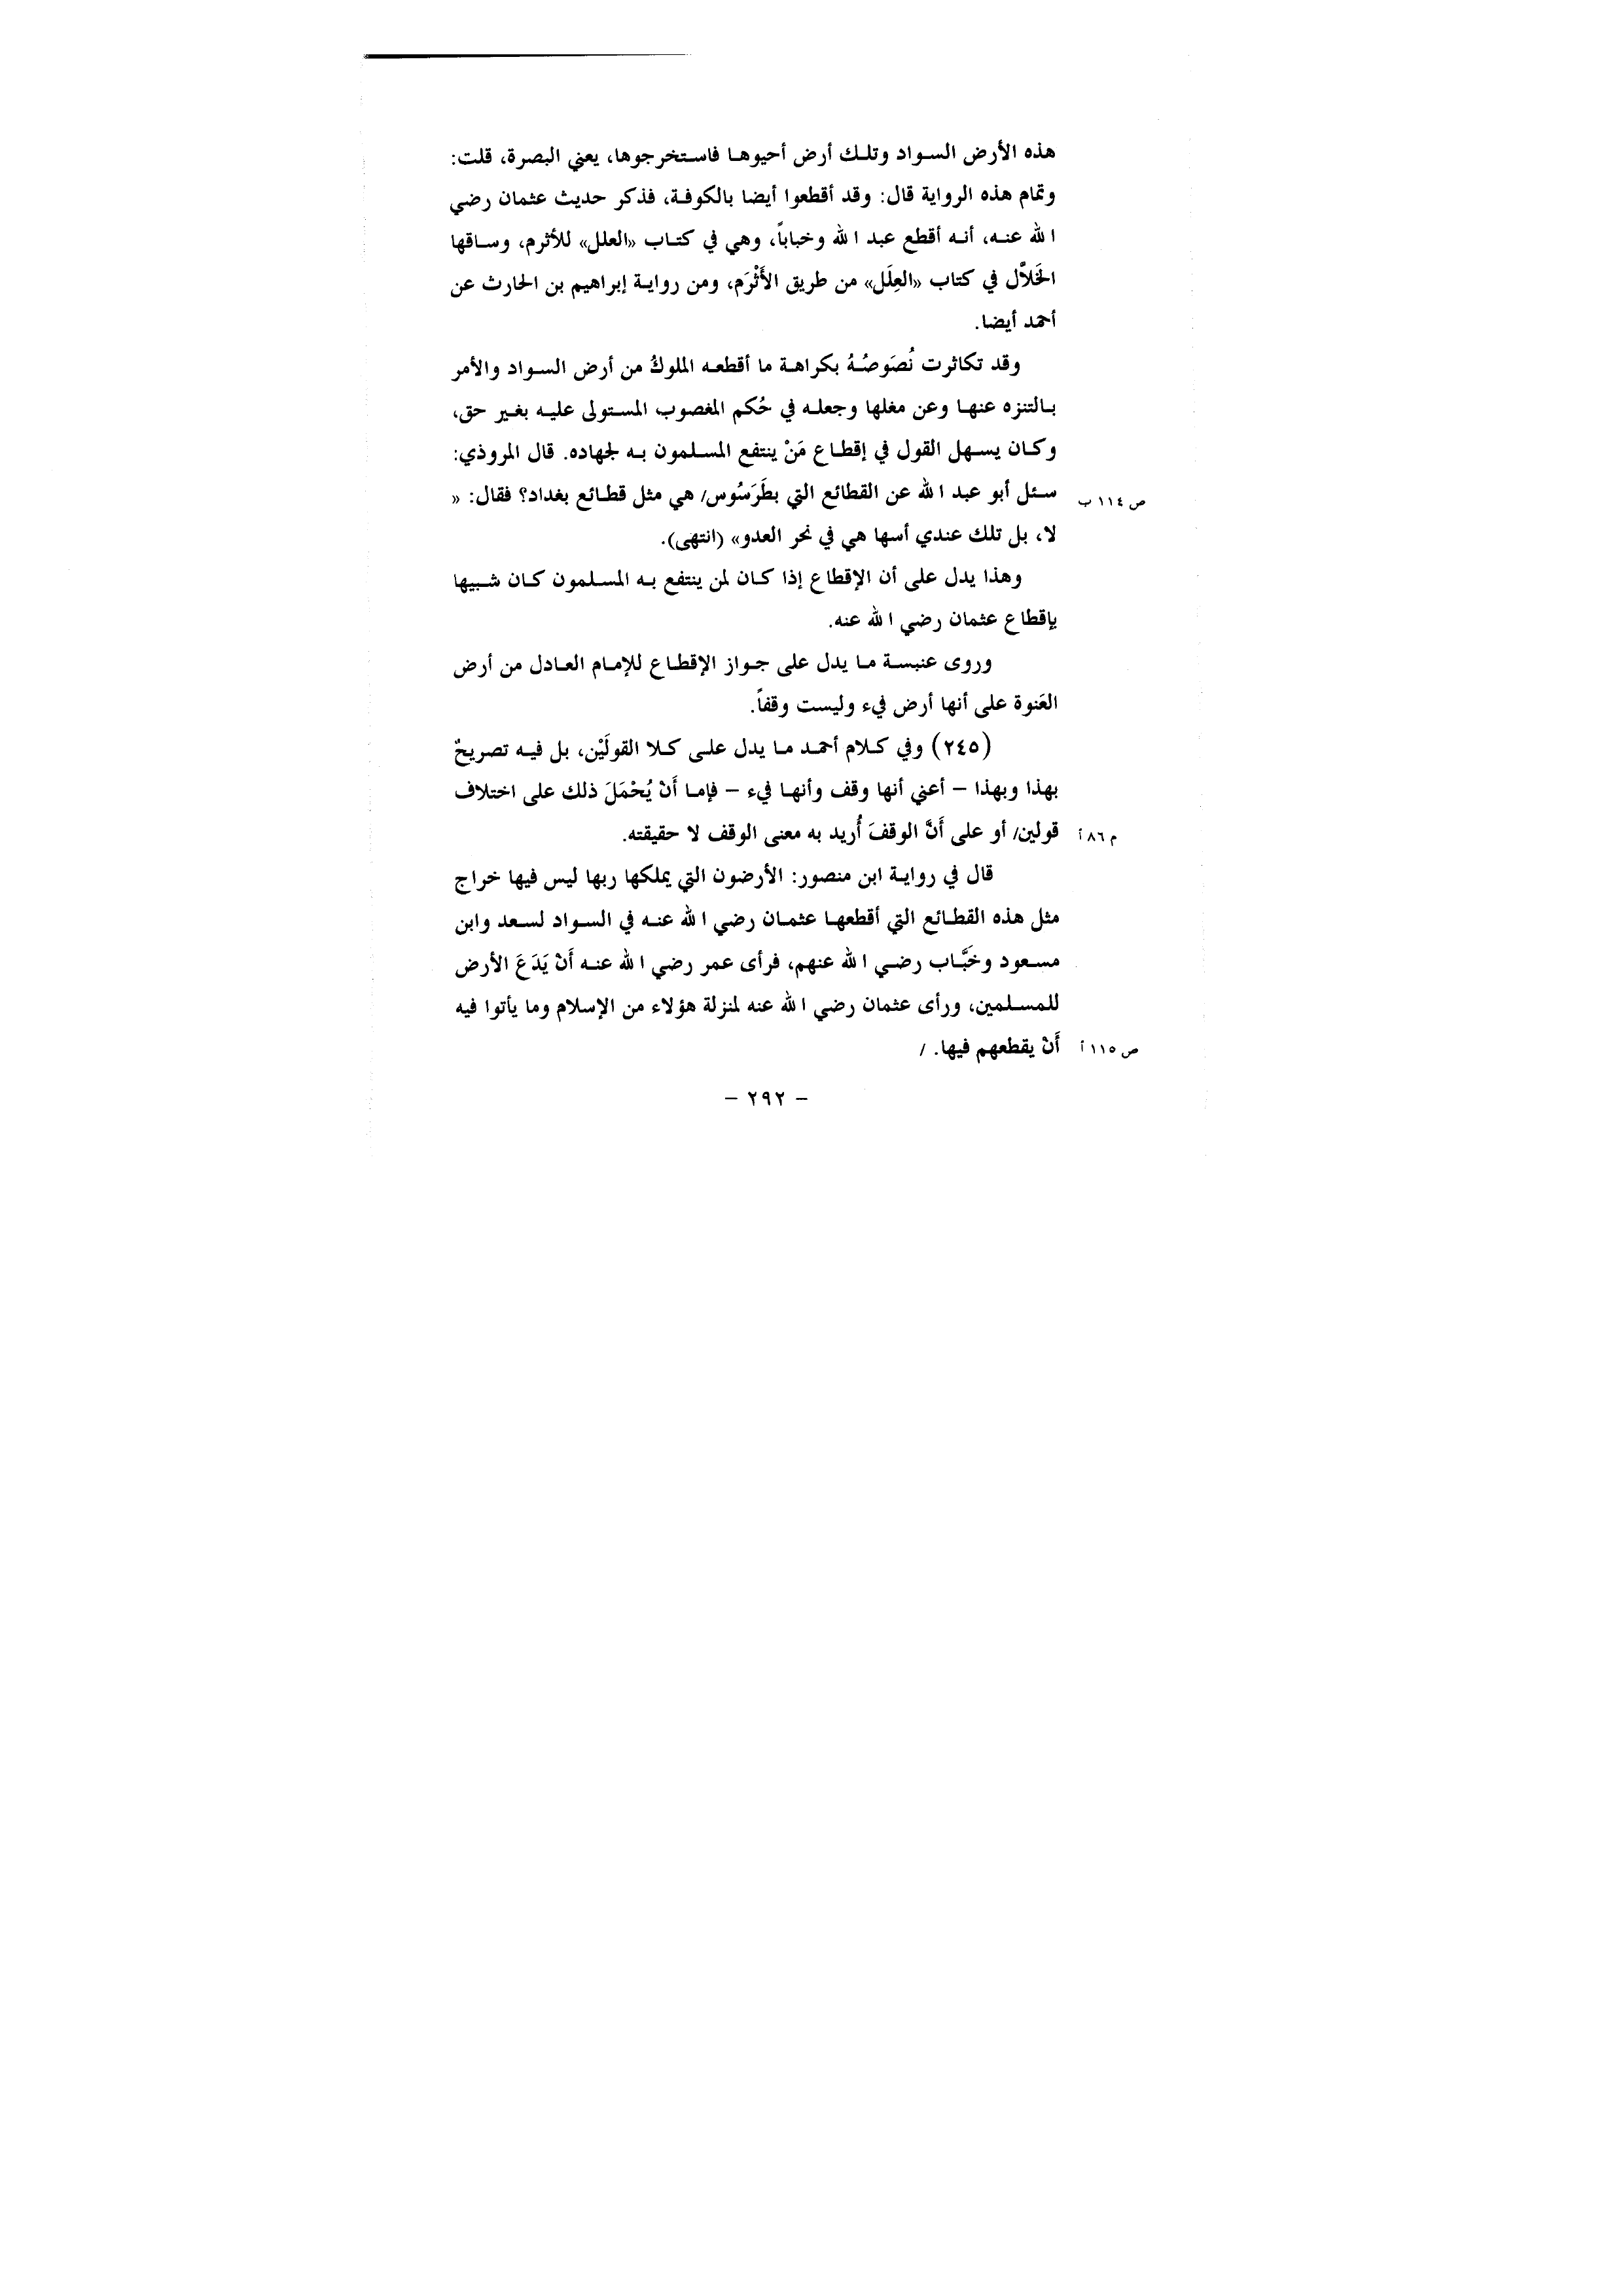 هذه الأرض السواد وتلك أرض أحيوها فاستخرجوها، يعني البصرة، قلت:
وتمام هذه الرواية قال: وقد أقطعوا أيضا بالكوفة، فذكر حديث عثمان رضي
الله عنه، أنه أقطع عبد الله وخباباً، وهي في كتاب «العلل» للأثرم، وساقها
الخَلاَّل في كتاب «العِلَل» من طريق الأَثْرَم، ومن رواية إبراهيم بن الحارث عن
أحمد أيضا.
وقد تكاثرت نُصَوصُهُ بكراهة ما أقطعه الملوكُ من أرض السواد والأمر
بالتنزه عنها وعن مغلها وجعله في حُكم المغصوب المستولى عليه بغير حق،
وكان يسهل القول في إقطاع مَنْ ينتفع المسلمون به لجهاده. قال المروذي:
سئل أبو عبد الله عن القطائع التي بطَرَسُوس/ هي مثل قطائع بغداد؟ فقال: « ص ١١٤ ب
لا، بل تلك عندي أسها هي في نحر العدو» (انتهى).
وهذا يدل على أن الإقطاع إذا كان لمن ينتفع به المسلمون كان شبيها
بإقطاع عثمان رضي الله عنه.
وروى عنبسة ما يدل على جواز الإقطاع للإمام العادل من أرض
العَنوة على أنها أرض فيء وليست وقفاً.
(٢٤٥) وفي كلام أحمد ما يدل على كلا القولَيْن، بل فيه تصريحٌ
بهذا وبهذا – أعني أنها وقف وأنها فيء – فإما أَنْ يُحْمَلَ ذلك على اختلاف
قولين/ أو على أَنَّ الوقفَ أُريد به معنى الوقف لا حقيقته. م ٨٦ أ
قال في رواية ابن منصور: الأرضون التي يملكها ربها ليس فيها خراج
مثل هذه القطائع التي أقطعها عثمان رضي الله عنه في السواد لسعد وابن
مسعود وخَبَّاب رضي الله عنهم، فرأى عمر رضي الله عنه أَنْ يَدَعَ الأرض
للمسلمين، ورأى عثمان رضي الله عنه لمنزلة هؤلاء من الإسلام وما يأتوا فيه
أَنْ يقطعهم فيها. / ص ١١٥ أ
– ٢٩٢ –